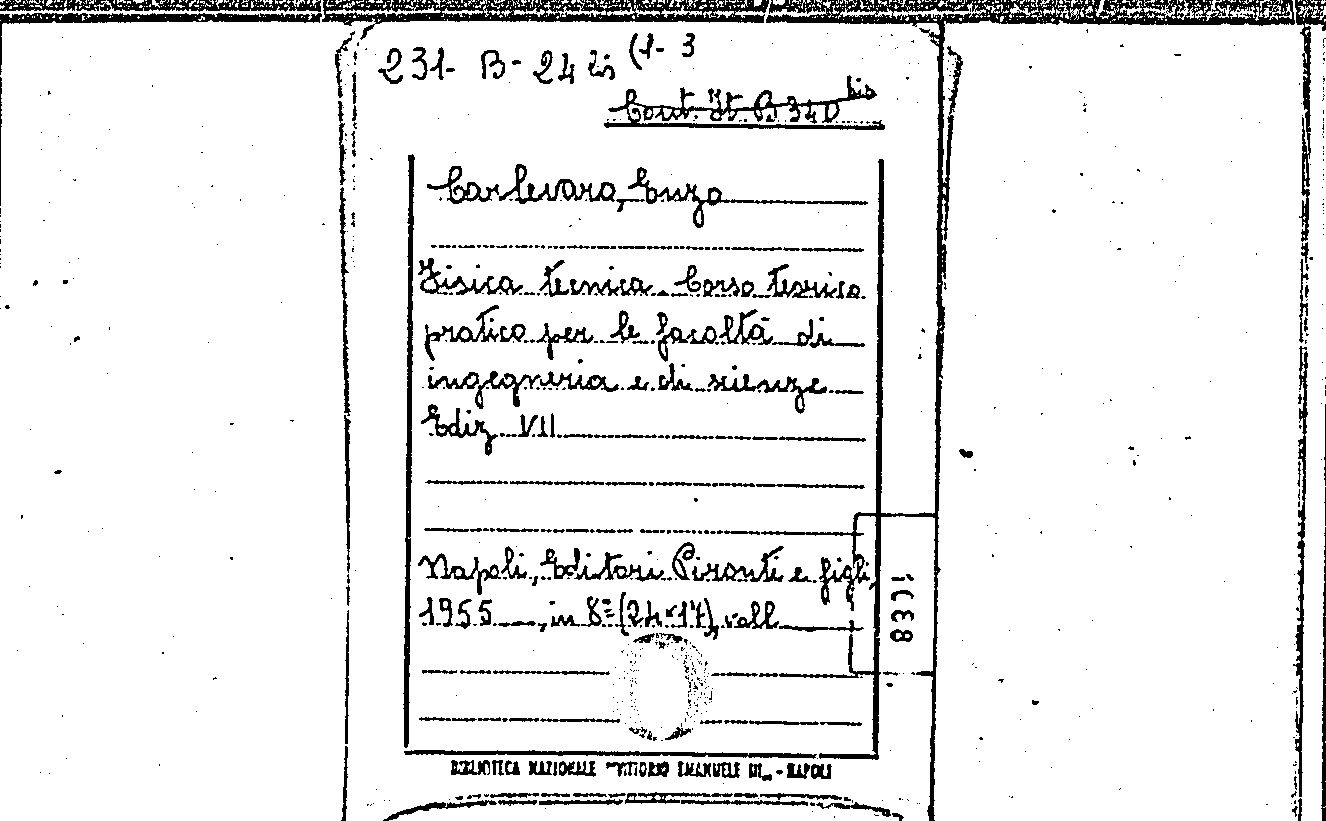 231- B- 24 bis (1- 3
Cont. It. B 340 bis
Carlevaro, Enzo
Fisica tecnica. Corso teorico
pratico per le facoltà di
ingegneria e di scienze
Ediz VII
Napoli, Editori Pironti e figli,
1955 , in 8º (24×17), voll
BIBLIOTECA NAZIONALE "VITTORIO EMANUELE III" - NAPOLI